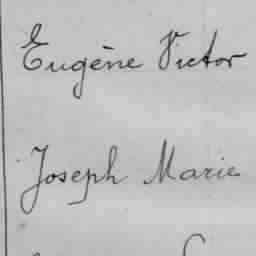 Eugène Victor
Joseph Marie